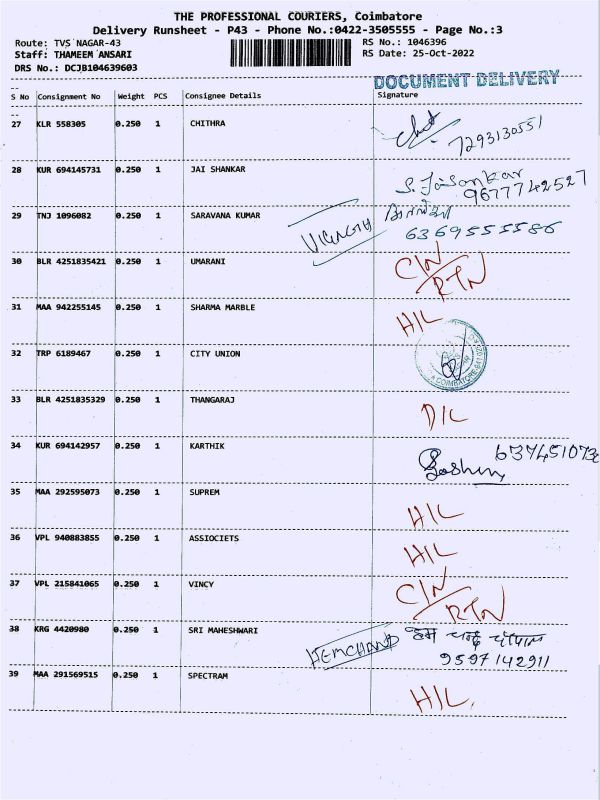 THE PROFESSIONAL COURIERS, Coimbatore
Delivery Runsheet - P43 - Phone No.:0422-3505555 - Page No.:3
Route: TVS NAGAR-43 RS No.: 1046396
Staff: THAMEEM ANSARI RS Date: 25-Oct-2022
DRS No.: DCJB104639603
DOCUMENT DELIVERY
--
S No Consignment No Weight PCS Consignee Details Signature
--
27 KLR 558305 0.250 1 CHITHRA
7293130551
28 KUR 694145731 0.250 1 JAI SHANKAR S. Jaisankar
9677742527
29 TNJ 1096082 0.250 1 SARAVANA KUMAR
6369555586
30 BLR 4251835421 0.250 1 UMARANI C/N
RTN
31 MAA 942255145 1 SHARMA MARBLE H/L
0.250
32 TRP 6189467 0.250 1 CITY UNION
COIMBATORE
33 BLR 4251835329 0.250 1 THANGARAJ D/L
34 KUR 694142957 0.250 1 KARTHIK
35 MAA 292595073 0.250 1 SUPREM H/L
36 VPL 940883855 0.250 1 ASSIOCIETS H/L
37 VPL 215841065 0.250 1 VINCY C/N
RTN
38 KRG 4420980 0.250 1 SRI MAHESHWARI HEMCHAND
9597142911
39 MAA 291569515 0.250 1 SPECTRAM H/L